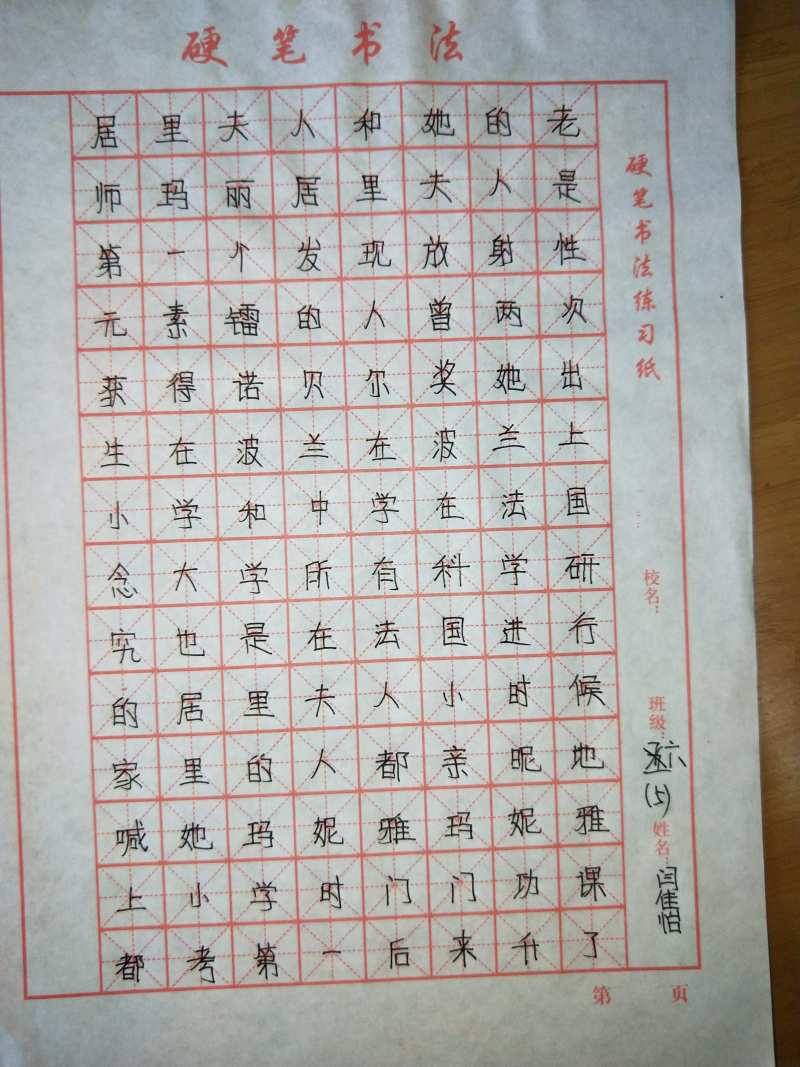 硬笔书法
居里夫人和她的老
师玛丽居里夫人是
第一个发现放射性
元素镭的人曾两次
获得诺贝尔奖她出
生在波兰在波兰上
小学和中学在法国
念大学所有科学研
究也是在法国进行
的居里夫人小时候
家里的人都亲昵地
喊她玛妮雅玛妮雅
上小学时门门功课
都考第一后来升了
硬笔书法练习纸
校名:
班级: 六(5)
姓名: 闫佳怡
第 页